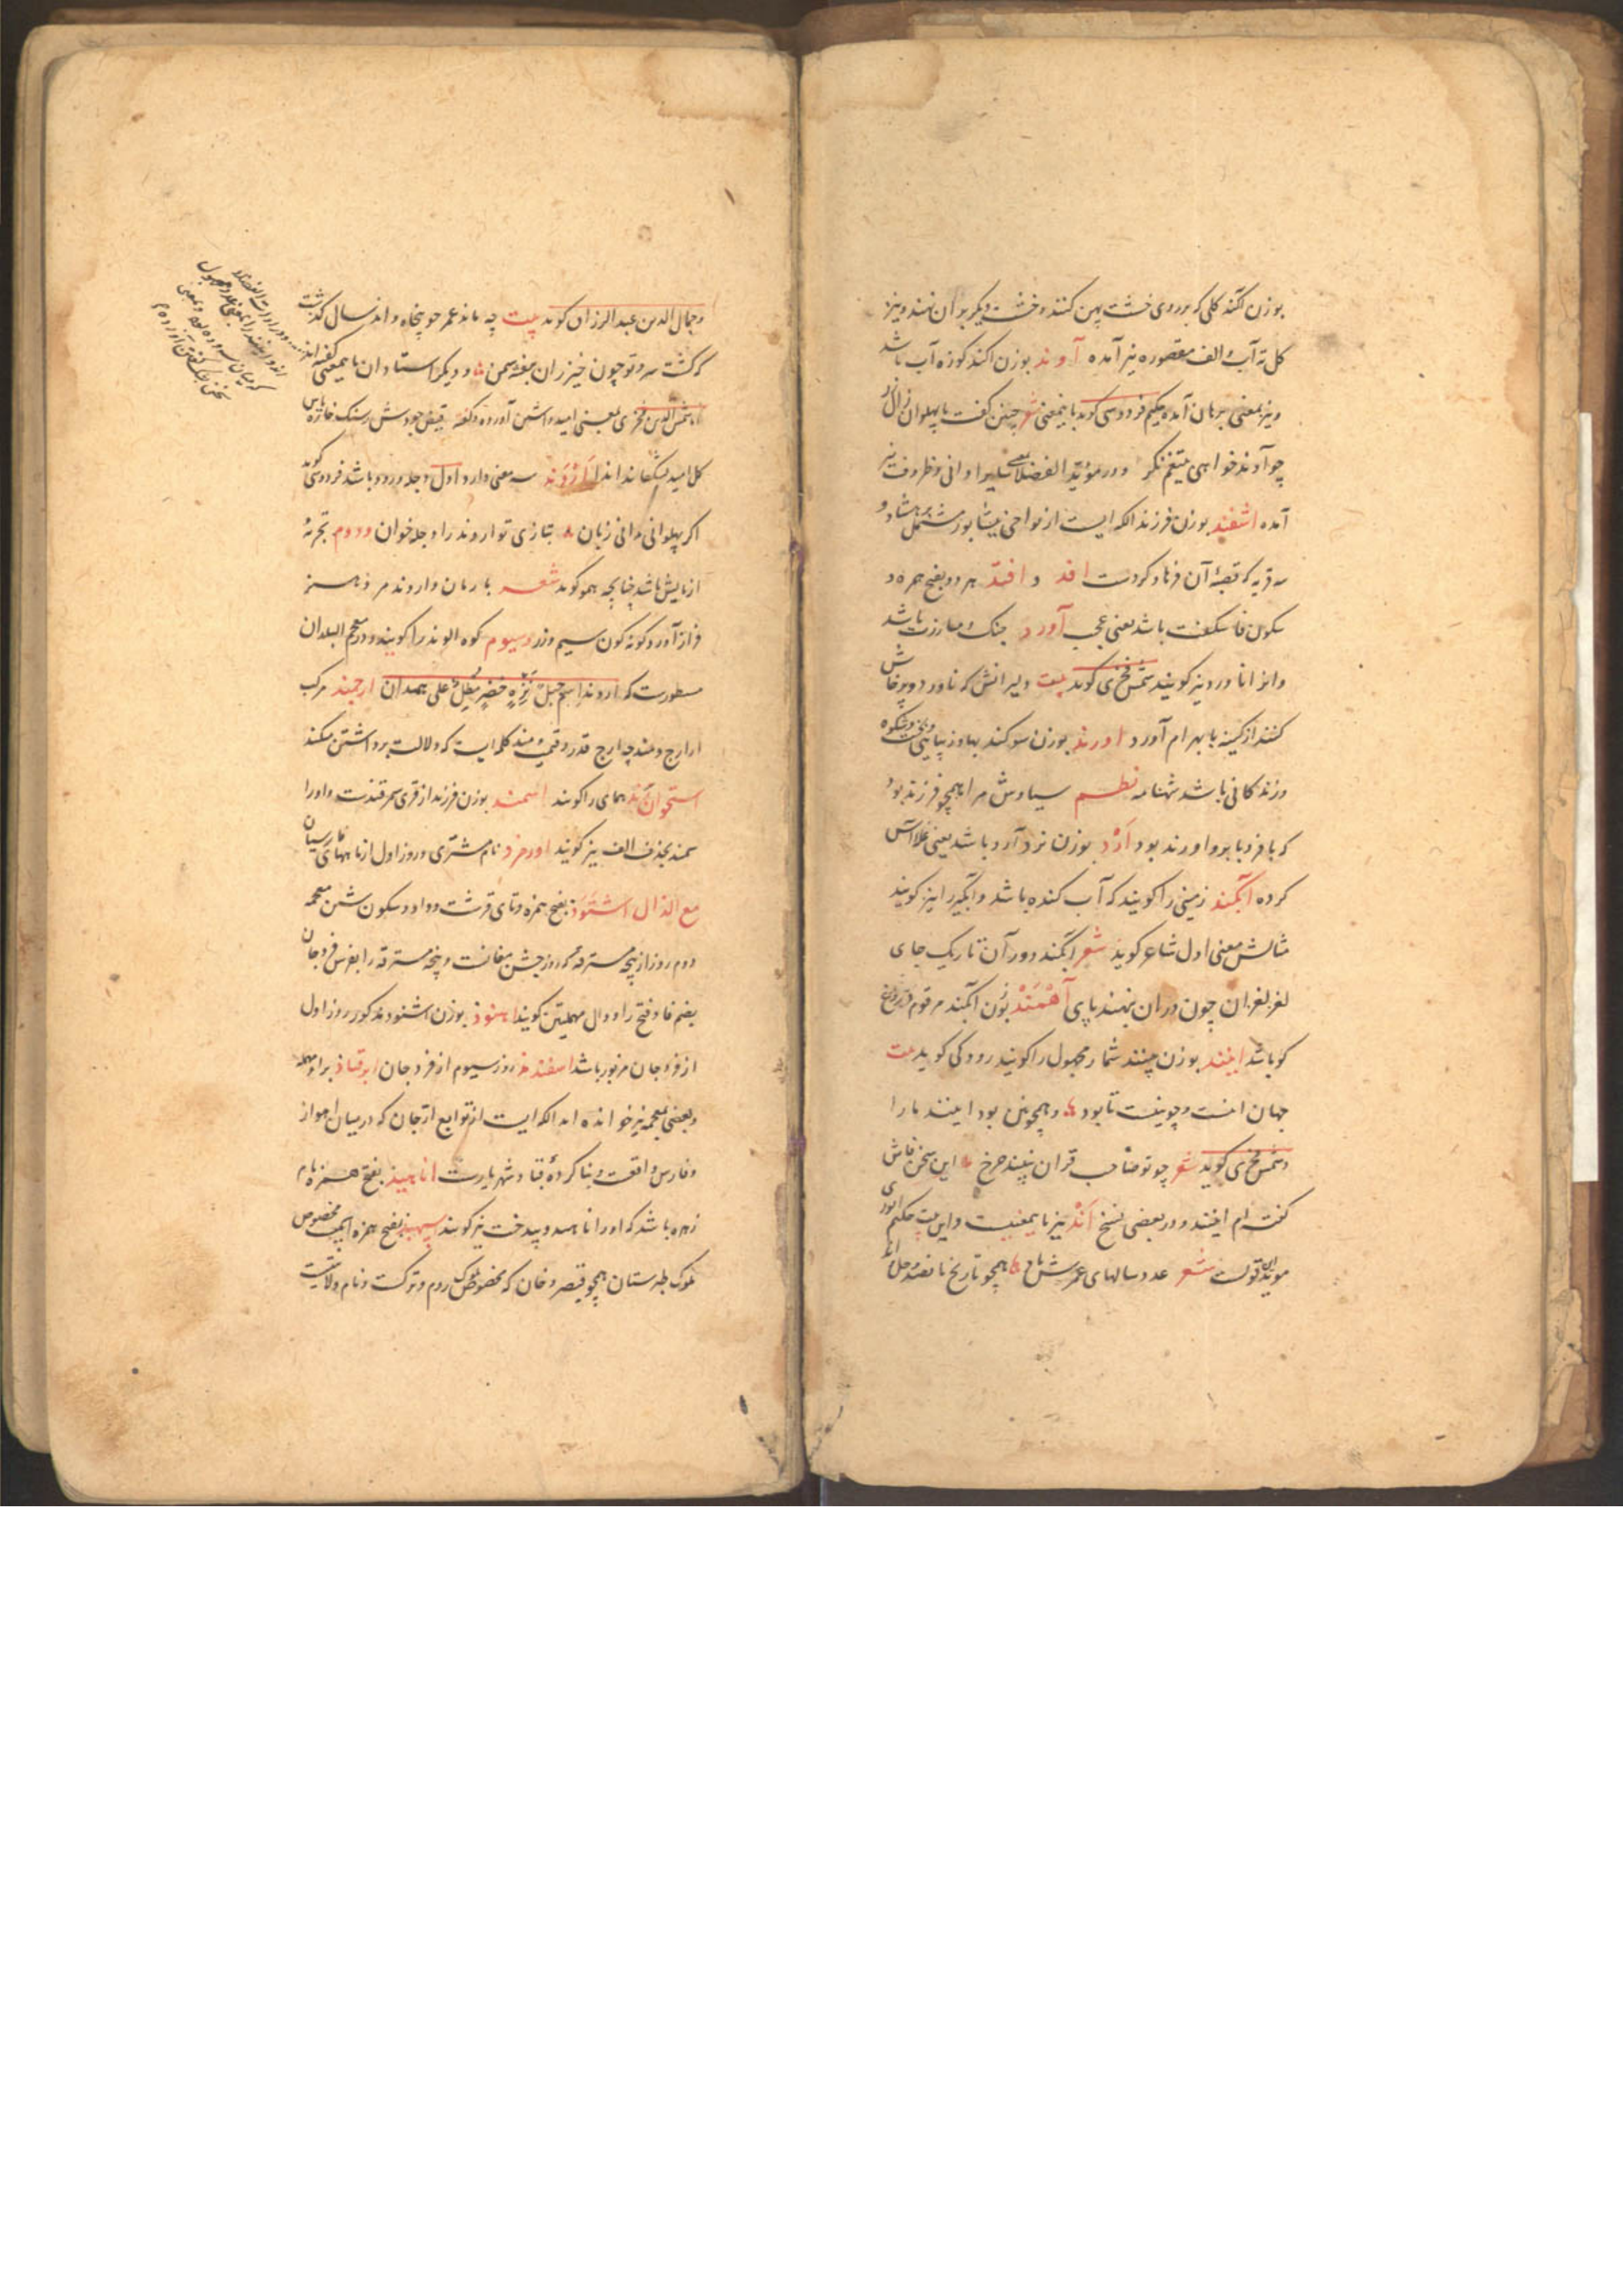 بوزن لکند کلی که بر روی خشت پهن کنند و خشت دیکر بر آن نهند و نیز
کل ته آب و الف مقصوره نیز آمده آوند بوزن اکند کوزه آب باشد
و نیز بمعنی برهان آمده حکیم فردوسی کوید باینمعنی شعر چنین کفت با پهلوان زال زر
چو آوند خواهی بتیغم نکر و در مؤید الفضلا بمعنی اوانی و ظروف نیز
آمده اشفند بوزن فرزند الکه ایست از نواحی نیشابور مشتمل بر هشتاد و
سه قریه که قصبهٔ آن فرهاد کردست افد و افند هر دو بفتح همزه و
سکون فا شکفت باشد یعنی عجب آورد جنک و مبارزت باشد
و انرا ناورد نیز کویند شمس فخری کوید بیت دلیرانش که ناورد و پرخاش
کنند از کینه با بهرام آورد اورند بوزن سوکند بها و زیبایی و تخت و شکوه
و زندکانی باشد شهنامه نظم سیاوش مرا همچو فرزند بود
که با فر و با برز و اورند بود اَرْد بوزن نرد آرد باشد یعنی غله آس
کرده آبکند زمینی را کویند که آب کنده باشد و آبکیر را نیز کویند
مثالش معنی اول شاعر کوید شعر آبکند دور آن تاریک جای
لغز لغزان چون در ان بنهند پای آهْمَنْد بوزن آبکند مرقوم دروغ
کو باشد ایند بوزن چند شمار مجهول را کویند رودکی کوید بیت
جهان اینست و چونینست تا بود و همچونین بود اینند بارا
و شمس فخری کوید شعر چو تو صاحب قران نبیند چرخ این سخن فاش
کفته ام اینند و در بعضی نسخ اَنْد نیز باینمعنیست و این بیت حکیم انوری
موید این قولست شعر عدد سالهای عمرش باد همچو تاریخ پانصد و چل اند
و جمال الدین عبد الرزاق کوید بیت چه ماند عمر چو پنجاه و اند سال کذشت
که کشت سرو تو چون خیزران بنفشه سمن و دیکر استادان باینمعنی کفته اند
اما شمس الدین فخری بمعنی امید داشتن آورده و کفته فیض جودش ز سنک خاره باس
کل امید بشکفانیده اند اَرْوَنْد سه معنی دارد اول دجله رود باشد فردوسی کوید
اکر پهلوانی ندانی زبان بتازی تو اروند را دجله خوان دووم تجربه
ازمایش باشد چنانچه همو کوید شعر با رمان و اروند مرد هنر
فراز آورد کونه کون سیم و زر و سیوم کوه الوند را کویند و در معجم البلدان
مسطورست که اروند اسم جبل نَزِهٍ خضر مطل علی همدان ارجمند مرکب
از ارج و مند چه ارج قدر و قیمت و مند کلمه ایست که دلالت بر داشتن میکند
استخوان رند همای را کویند اسمند بوزن فرزند از قری سمرقندست و او را
سمند بحذف الف نیز کویند اورمزد نام مشتری و روز اول از ماههای پارسیان
مع الذال اشتوذ بفتح همزه و تای قرشت و واو و سکون شین معجمه
دوم روز از پنجه مسترقه که روز جشن مغانست و پنجه مسترقه را بفرس فرودجان
بضم فا و فتح را و دال مهملتین کویند اهنوذ بوزن اشتوذ مذکور روز اول
از فرودجان مزبور باشد اسفندمذ روز سیوم از فرودجان ابرقباذ براء مهمله
و بعضی بمعجمه نیز خوانده اند الکه ایست از توابع ارّجان که در میان اهواز
و فارس واقعست و بنا کردهٔ قباد شهریارست اناهیذ بفتح همزه نام
زهره باشد که او را ناهید و بیدخت نیز کویند اسپهبذ بفتح همزه اسمیست مخصوص
ملوک طبرستان همچو قیصر و خان که مخصوص ملوک روم و ترکست و نام ولایتیست
و در ادات الفضلا